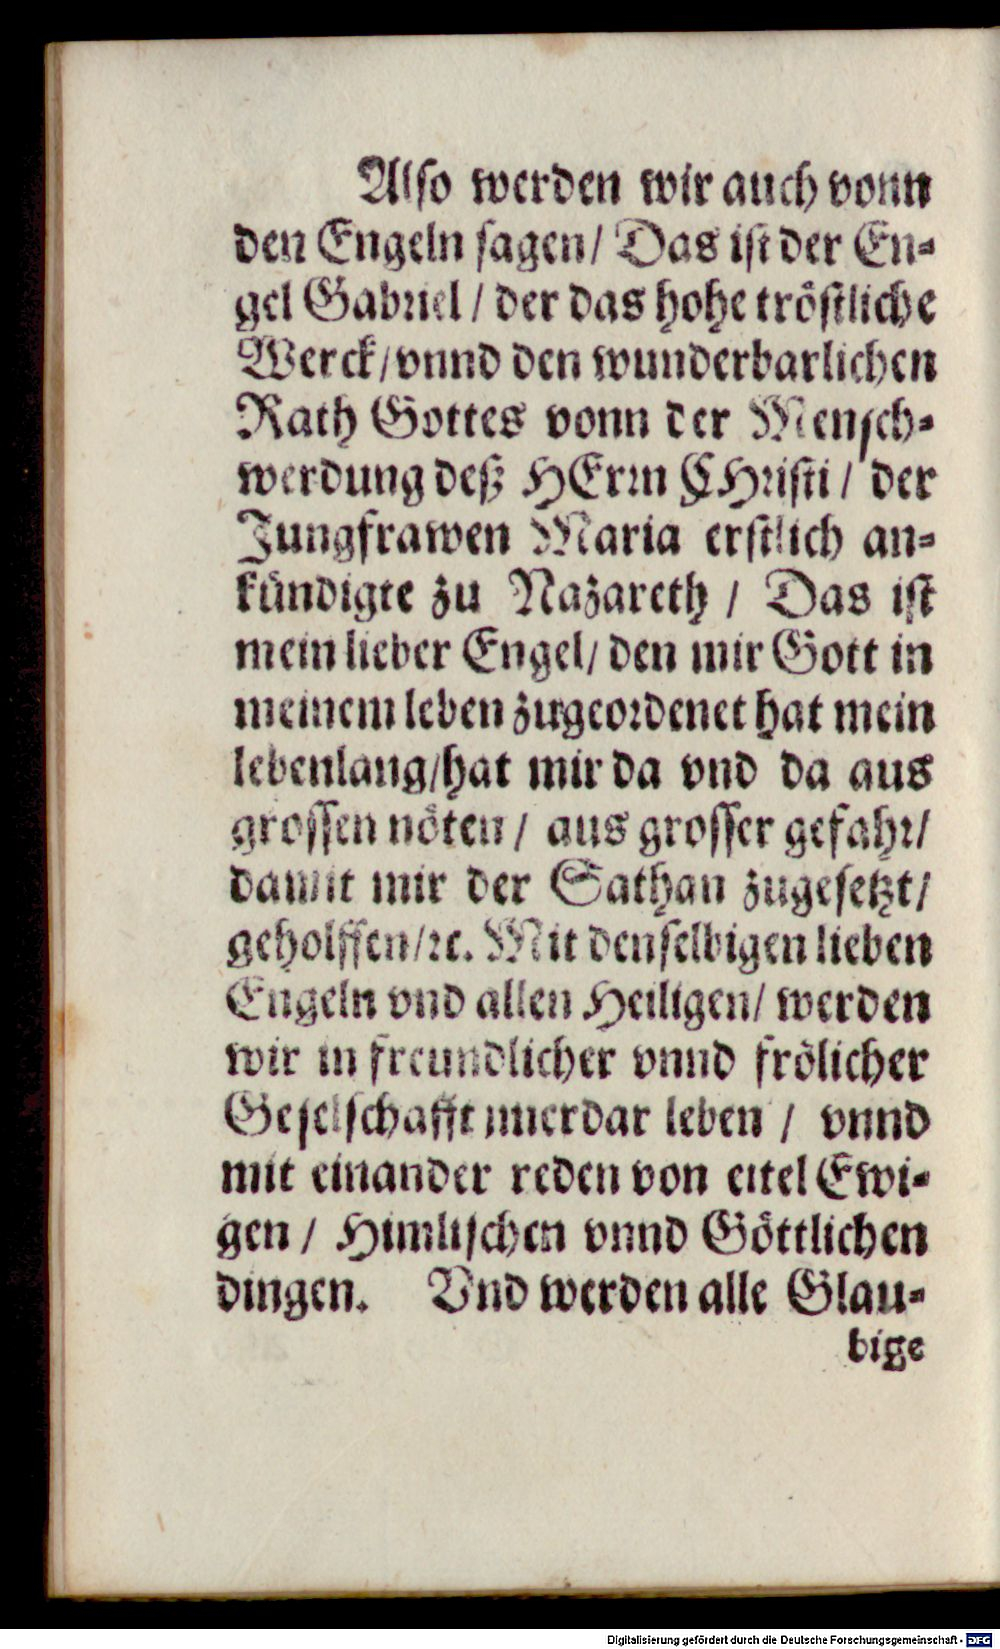 Alſo werden wir auch vonn
den Engeln ſagen/ Das iſt der En⸗
gel Gabꝛiel / der das hohe tröſtliche
Werck/vnnd den wunderbarlichen
Rath Gottes vonn der Menſch⸗
werdung deß HErꝛn CHꝛiſti / der
Jungfrawen Maria erſtlich an⸗
kündigte zu Nazareth / Das iſt
mein lieber Engel/ den mir Gott in
meinem leben zugeoꝛdenet hat mein
lebenlang/hat mir da vnd da aus
groſſen nöten / aus groſſer gefahꝛ/
damit mir der Sathan zugeſetzt/
geholffen/ꝛc. Mit denſelbigen lieben
Engeln vnd allen Heiligen/ werden
wir in freundlicher vnnd frölicher
Geſelſchafft imerdar leben / vnnd
mit einander reden von eitel Ewi⸗
gen / Himliſchen vnnd Göttlichen
dingen. Vnd werden alle Glau⸗
bige
Digitalisierung gefördert durch die Deutsche Forschungsgemeinschaft - DFG